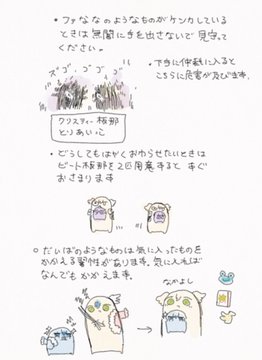 ・ファななのようなものがケンカしている
ときは無闇に手を出さないで見守って
ください。
ズゴゴゴゴゴ
・下手に仲裁に入ると
こちらに危害が及びます。
クリスティー板那
とりあいっこ
・どうしてもはやくおわらせたいときは
ビート板那を2匹用意すると すぐ
おさまります
○だいばのようなものは気に入ったものを
かかえる習性があります。気に入れば
なんでもかかえます。
なかよし